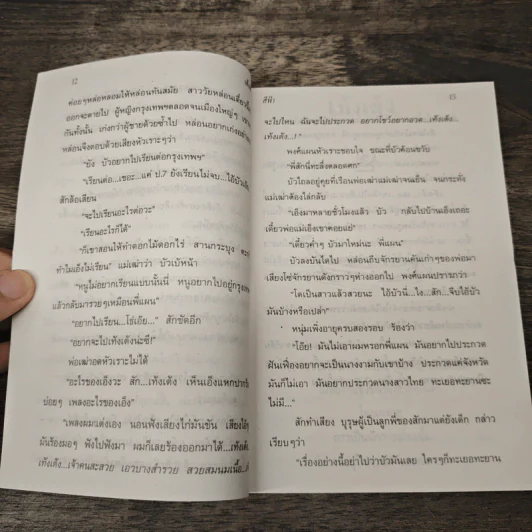 ๑๒
ค่อยๆหล่อหลอมให้หล่อนทันสมัย สาววัยหล่อนเดี๋ยวนี้
ออกจะตายไป ผู้หญิงกรุงเทพฯตลอดจนเมืองใหญ่ๆ
กันทั้งนั้น เก่งกว่าผู้ชายด้วยซ้ำไป หล่อนอยากเก่งอย่าง
หล่อนจึงตอบด้วยเสียงหัวเราะๆว่า
"ยัง บัวอยากไปเรียนต่อกรุงเทพฯ"
"เรียนต่อ...เชอะ...แค่ ป.7 ยังเรียนไม่จบ...ไอ้บัว
สักล้อเลียน
"จะไปเรียนอะไรต่อวะ"
"เรียนอะไรก็ได้"
"ก็เขาสอนให้ทำดอกไม้ดอกไร่ สานกระบุง
ทำไมเอ็งไม่เรียน" แม่เฒ่าว่า บัวเบ้หน้า
"หนูไม่อยากเรียนแบบนั้นนี่ หนูอยากไปอยู่กรุง
แล้วกลับมารวยๆเหมือนพี่แผน"
"อยากไปเรียน...โธ่เอ๊ย..." สักขัดอีก
"อยากจะไปเท้งเต้งน่ะซี!"
พ่อเฒ่าอดหัวเราะไม่ได้
"อะไรของเอ็งวะ สัก...เท้งเต้ง เห็นเอ็งแหกปาก
บ่อยๆ เพลงอะไรของเอ็ง"
"เพลงผมแต่งเอง นอนฟังเสียงไก่มันขัน เสียง
มันร้องผอๆ ฟังไปฟังมา ผมก็เลยร้องออกมาได้...เท้งเต้ง
เท้งเต้ง...เจ้าคนสะสวย เอวบางสำรวย สวยสมนมเนื้อ...
สีฟ้า
๑๓
จะไปไหน ฉันจะไปประกวด อยากโชว์อยากอวด...เท้งเต้ง...
เท้งเต้ง..!"
พงศ์แผนหัวเราะชอบใจ ขณะที่บัวค้อนขวับ
"พี่สักนี่ทะลึ่งตลอดศก"
บัวไถลอยู่คุยที่เรือนพ่อเฒ่าแม่เฒ่าจนเย็น จนกระทั่ง
แม่เฒ่าต้องไล่กลับ
"เอ็งมาหลายชั่วโมงแล้ว บัว กลับไปบ้านเอ็งเถอะ
เดี๋ยวพ่อแม่เอ็งเขาคอยแย่"
"เดี๋ยวค่ำๆ บัวมาใหม่นะ พี่แผน"
บัวลงบันไดไป หล่อนถีบจักรยานคันเก่าๆของพ่อมา
เสียงโซ่จักรยานดังกราวๆห่างออกไป พงศ์แผนปรารภว่า
"โตเป็นสาวแล้วสวยนะ ไอ้บัวนี่...ไง...สัก...จีบไอ้บัว
มันบ้างหรือเปล่า"
หนุ่มเพิ่งอายุครบสองรอบ ร้องว่า
"โอ๊ย! มันไม่เอาผมหรอกพี่แผน มันอยากไปประกวด
ฝันเฟื่องอยากจะเป็นนางงามกับเขาบ้าง ประกวดแค่จังหวัด
มันก็ไม่เอา มันอยากประกวดนางสาวไทย ทะเยอทะยานซะ
ไม่มี..."
สักทำเสียง บุรุษผู้เป็นลูกพี่ของสักมาแต่ยังเด็ก กล่าว
เรียบๆว่า
"เรื่องอย่างนี้อย่าไปว่าบัวมันเลย ใครๆก็ทะเยอทะยาน